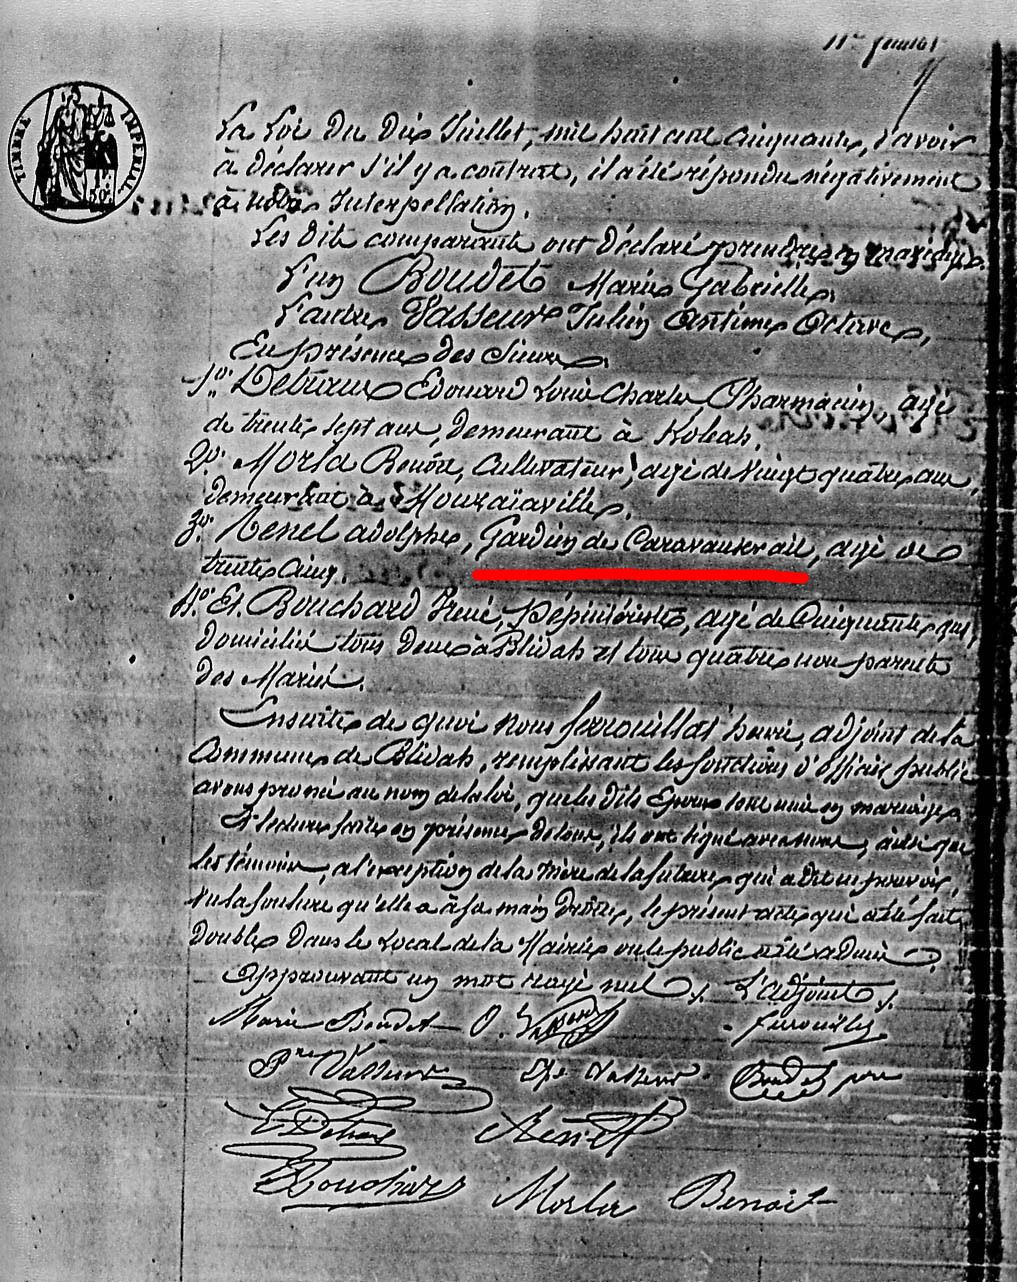 11 Juillet
TIMBRE IMPERIAL
50c
La Loi du dix Juillet, mil huit cent cinquante, d'avoir
à déclarer s'il y a contrat, il a été répondu négativement
à notre Interpellation.
Les dits comparants ont déclaré prendre en mariage,
L'un Boudet Marie Gabrielle,
L'autre Vasseur Julien Antime Octave,
En présence des Sieurs
1o Edouard Louis Charles Pharmacien, agé
de trente sept ans, demeurant à Koleah.
2o Morla Benoit, Cultivateur, agé de Vingt quatre ans,
demeurant à Mouzaïaville.
3o Renel adolphe, Gardien de Caravanserail, agé de
trente Cinq.
4o Et Bouchard René, Pépiniériste, agé de Cinquante ans,
domicilié tous deux à Blidah et tous quatre non parents
des Mariés.
Ensuite de quoi Nous ferrouillat henri, adjoint de la
Commune de Blidah, remplissant les fonctions d'officier public
avons proné au nom de la loi, que les dits Epoux sont unis en mariage
Et lecture faite en présence de tous, ils ont signé avec nous, ainsi que
les témoins, a l'exception de la mère de la future, qui a dit ne pouvoir,
Vu la foulure qu'elle a à sa main droite, le présent acte qui a été fait
double dans le Local de la Mairie ou le public a été admis
approuvant un mot rayé nul L'adjoint
Marie Boudet O. Vasseur ferrouillat
Vasseur Vasseur Boudet père
Renel
Bouchard Morla Benoit